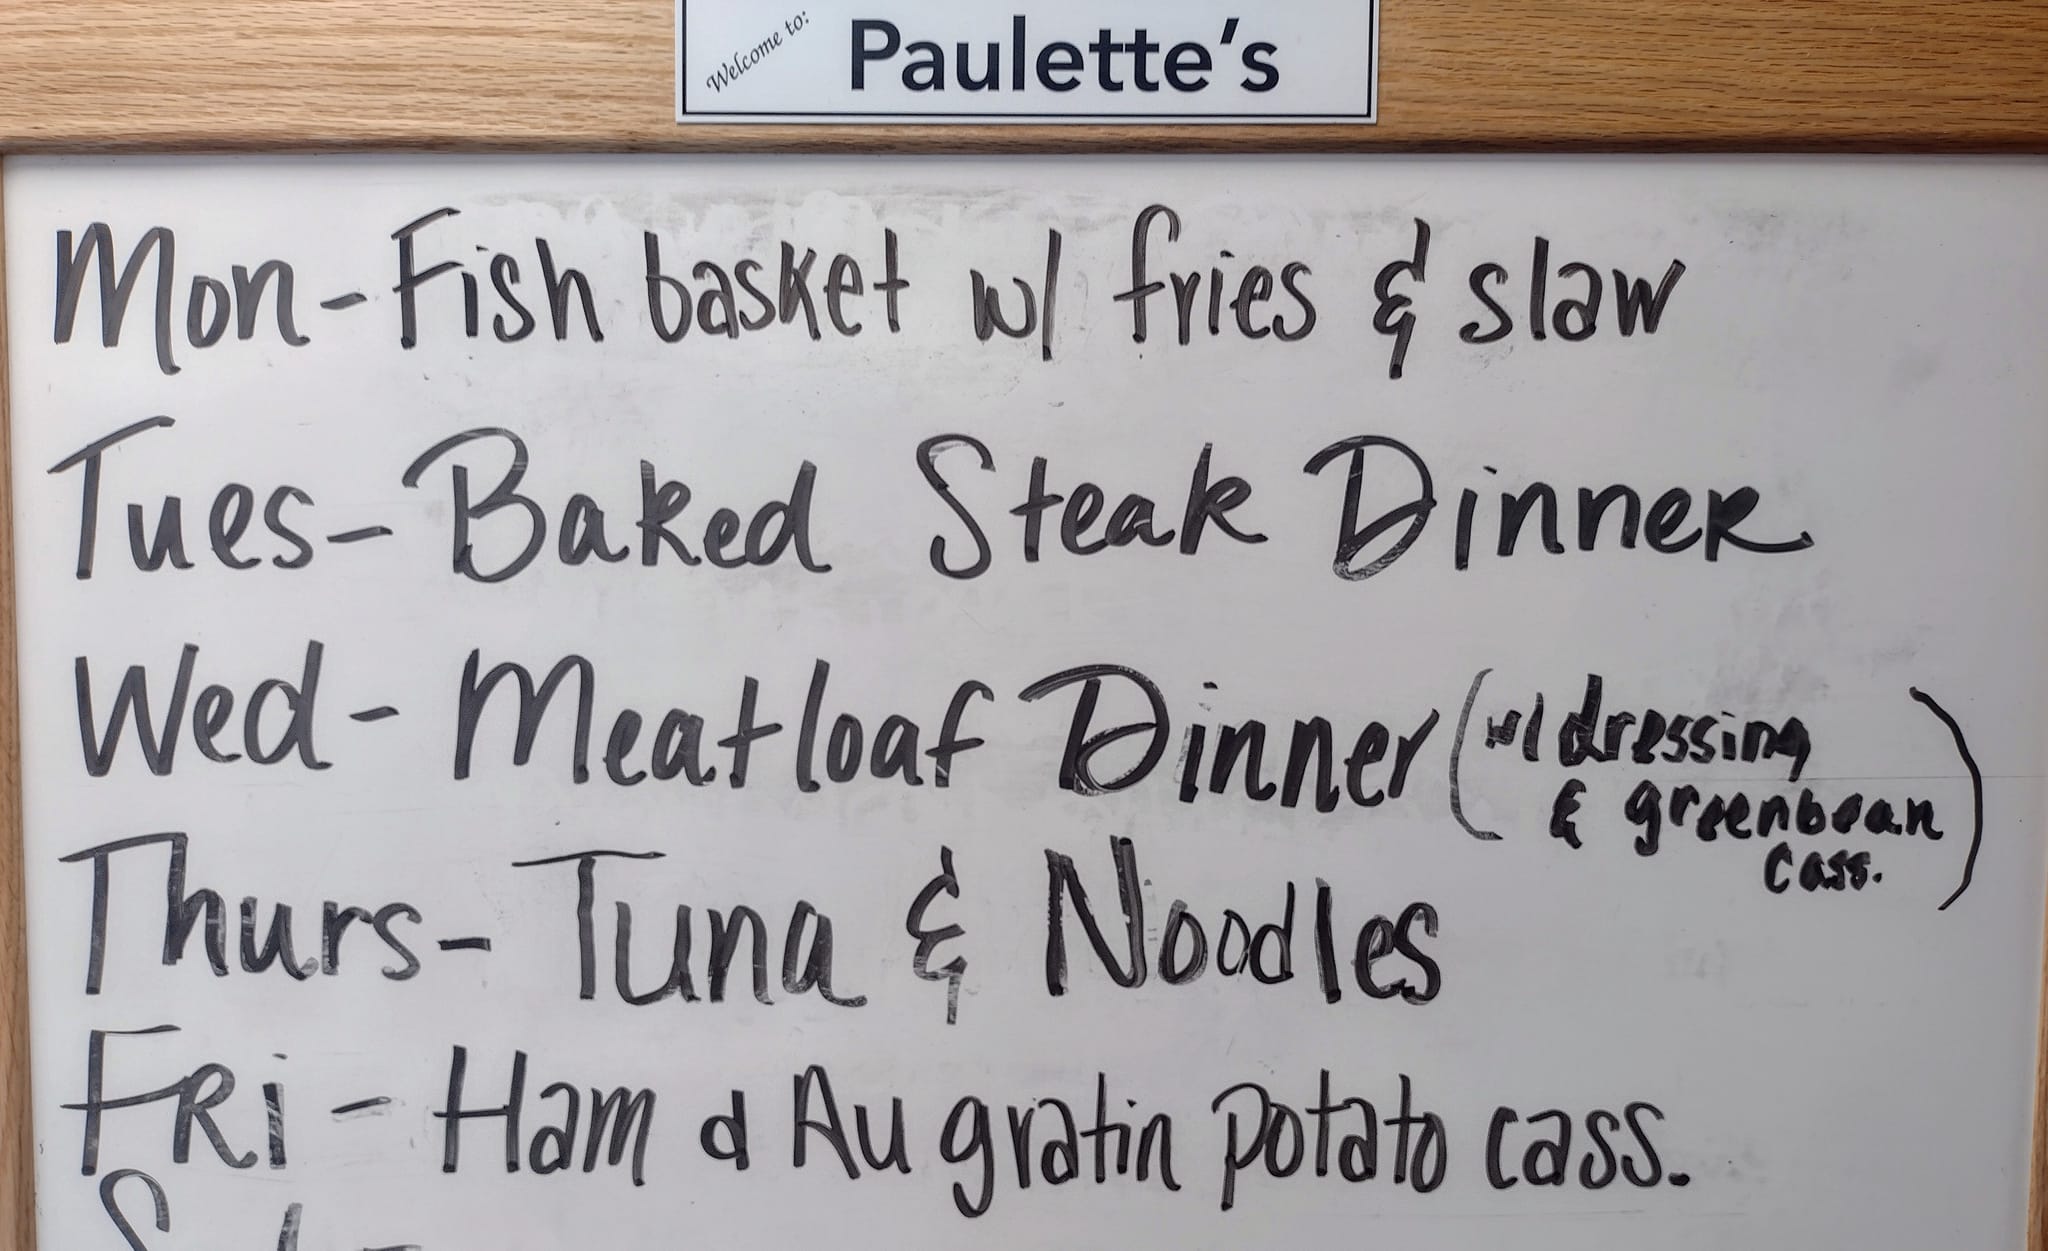 Welcome to: Paulette's
Mon-Fish basket w/ fries & slaw
Tues-Baked Steak Dinner
Wed-Meatloaf Dinner (w/ dressing
& greenbean
cass.)
Thurs-Tuna & Noodles
FRi-Ham & Au gratin potato cass.